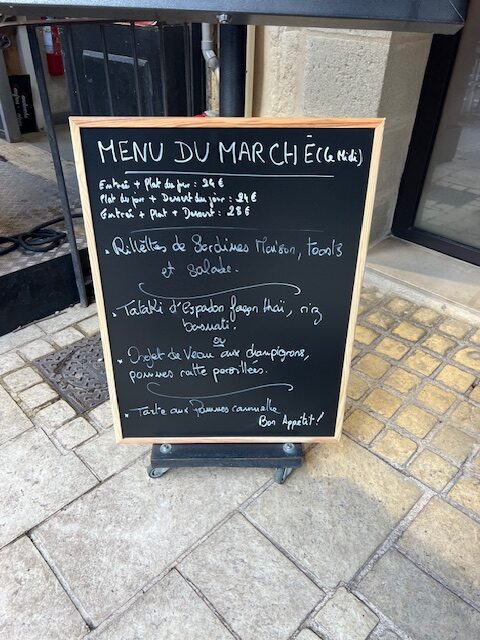 MENU DU MARCHÉ (Le Midi)
Entrée + Plat du jour : 24 €
Plat du jour + Dessert du jour : 24 €
Entrée + Plat + Dessert : 28 €
* Rillettes de Sardines Maison, Toasts
et Salade.
* Tataki d'Espadon façon thaï, riz
basmati.
ou
* Onglet de Veau aux champignons,
pommes ratte persillées.
* Tarte aux Pommes cannelle
Bon Appétit !